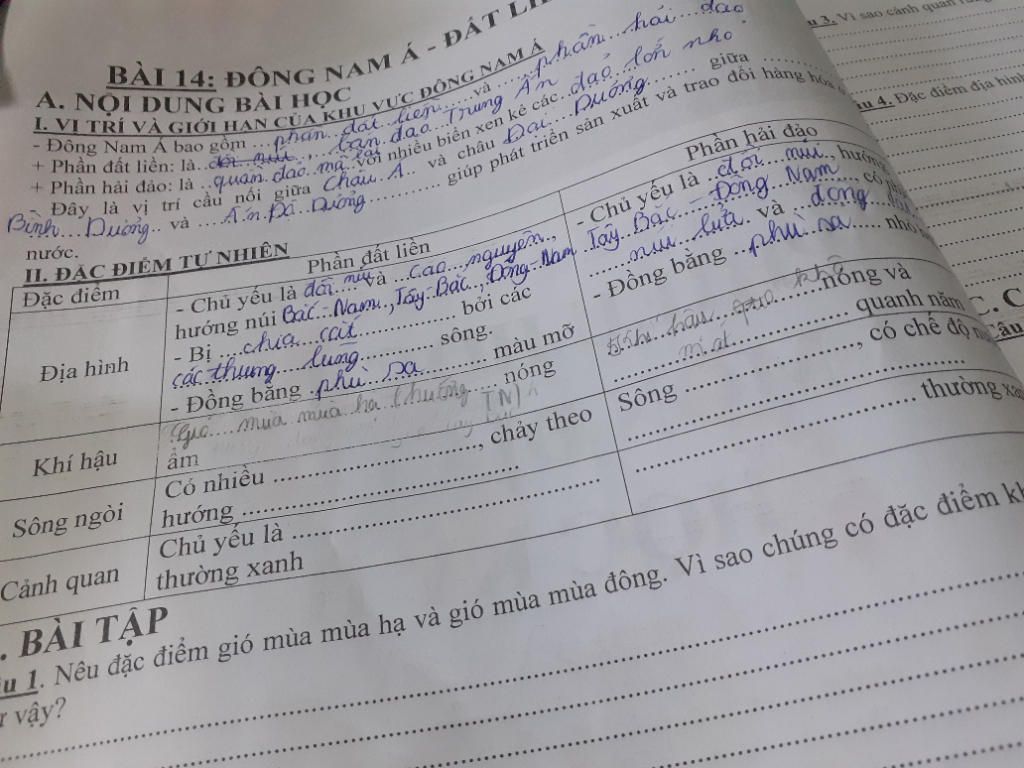 BÀI 14: ĐÔNG NAM Á - ĐẤT LI
A. NỘI DUNG BÀI HỌC
I. VỊ TRÍ VÀ GIỚI HẠN CỦA KHU VỰC ĐÔNG NAM Á
- Đông Nam Á bao gồm ...phần đất liền... và ...phần hải đảo
+ Phần đất liền: là bán đảo Trung Ấn giữa
+ Phần hải đảo: là quần đảo mã lai với nhiều biển xen kẽ các đảo lớn nhỏ
Đây là vị trí cầu nối giữa Châu Á.. và châu Đại Dương
Bình...Dương.. và ...Ấn Độ Dương............ giúp phát triển sản xuất và trao đổi hàng hóa
nước.
II. ĐẶC ĐIỂM TỰ NHIÊN
Đặc điểm Phần đất liền Phần hải đảo
Địa hình
- Chủ yếu là đồi núi và ...cao nguyên..,
hướng núi Bắc - Nam, Tây-Bắc, Đông-Nam
- Bị ...chia...cắt............ bởi các
các thung...lũng............ sông.
- Đồng bằng phù...sa............ màu mỡ
- Chủ yếu là ..đồi...núi.., hướng
Tây-Bắc - Đông Nam
......núi...lửa... và ..động
- Đồng bằng ..phù...sa...... nhỏ
Khí hậu
Gió...mùa mùa hạ (hướng TN) nóng
ẩm
khí hậu nóng và
............... quanh năm
Sông ngòi
Có nhiều ........................., chảy theo
hướng .................................
Sông ........................, có chế độ
.................................
Cảnh quan
Chủ yếu là .................................
thường xanh
................................. thường xa
. BÀI TẬP
u 1. Nêu đặc điểm gió mùa mùa hạ và gió mùa mùa đông. Vì sao chúng có đặc điểm kh
ư vậy?
u 3. Vì sao cảnh quan rừng
âu 4. Đặc điểm địa hình
C. C
Câu